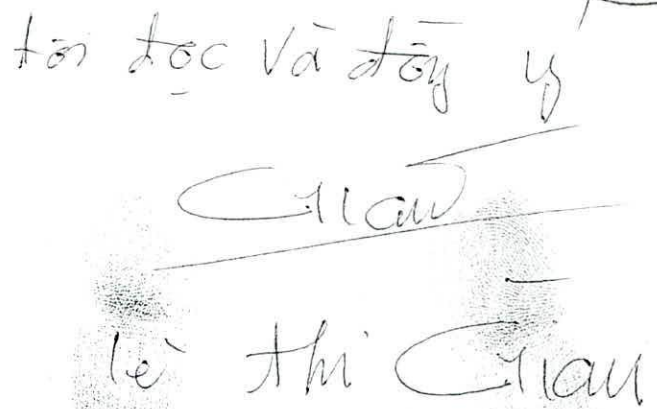 tôi đọc và đồng ý
Giàu
lê thi Giàu